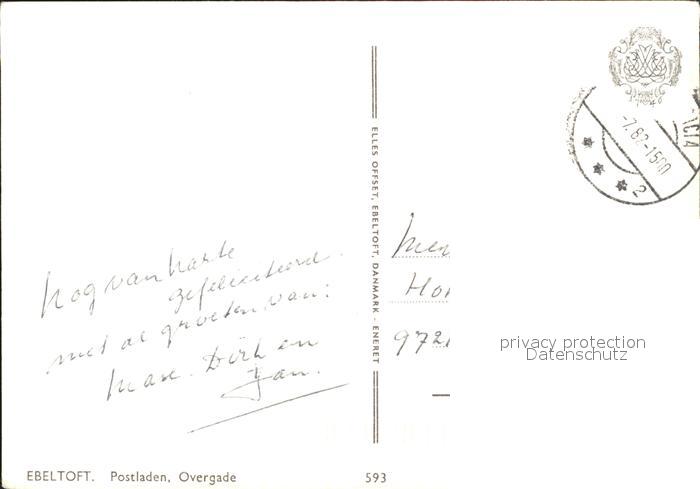 nog van harte
gefeliciteerd.
met de groeten van:
Dirk en
Jan.
ELLES OFFSET, EBELTOFT, DANMARK - ENERET
-7.82-1500
2
9721
privacy protection
Datenschutz
EBELTOFT. Postladen, Overgade
593